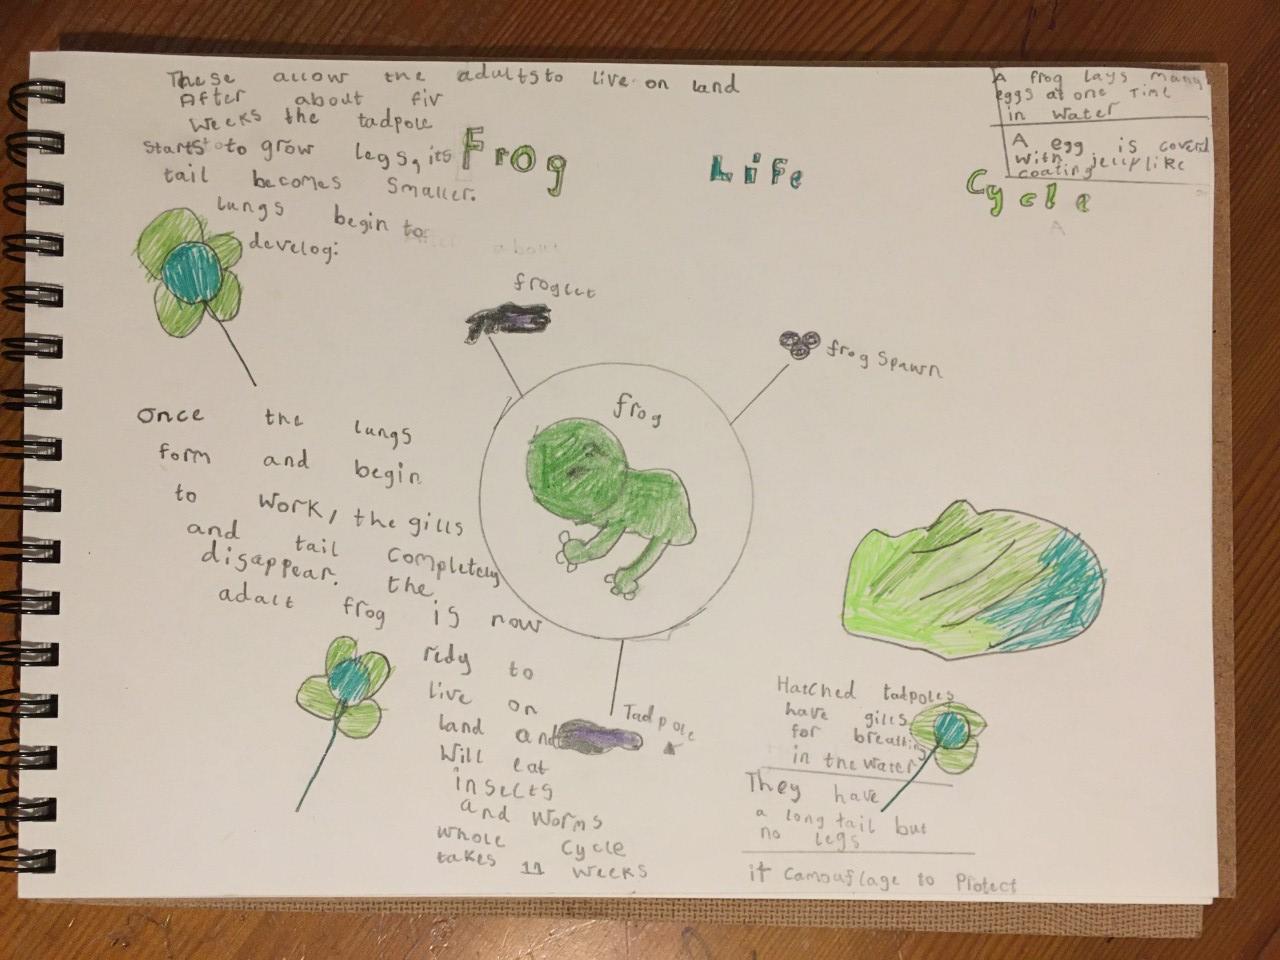 These allow the adults to live on land
After about fiv
weeks the tadpole
starts to grow legs, its
tail becomes smaller.
lungs begin to
develog.
Frog Life Cycle
A frog lays many
eggs at one time
in water
A egg is coverd
with jelly like
coating
A
After about
froglet
frog spawn
frog
once the lungs
form and begin
to work, the gills
and tail completely
disappear. the
adalt frog is now
redy to
live on
land and
will eat
insects
and worms
whole cycle
takes 11 weeks
Tadpole
Hatched tadpoles
have gills
for breathing
in the water
They have
a long tail but
no legs
it camouflage to Protect